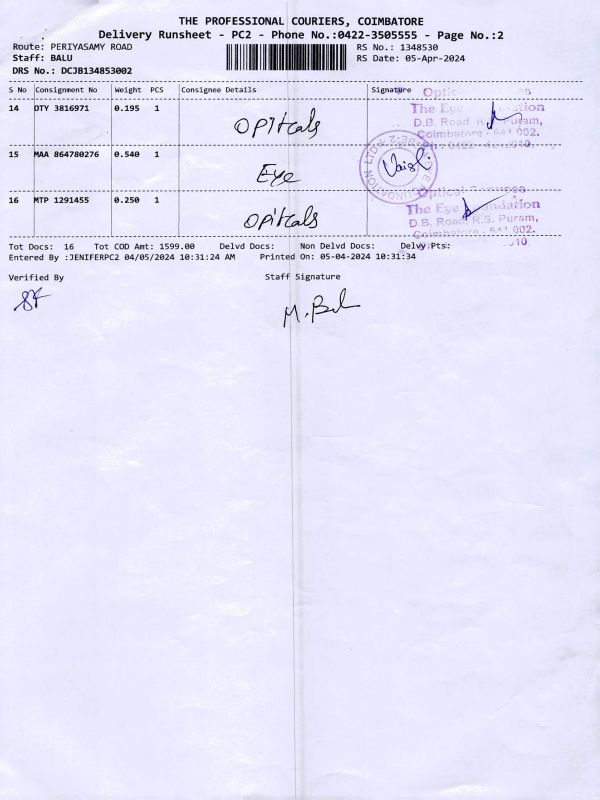 THE PROFESSIONAL COURIERS, COIMBATORE
Delivery Runsheet - PC2 - Phone No.:0422-3505555 - Page No.:2
Route: PERIYASAMY ROAD RS No.: 1348530
Staff: BALU RS Date: 05-Apr-2024
DRS No.: DCJB134853002
S No Consignment No Weight PCS Consignee Details Signature
14 OTY 3816971 0.195 1 OPitcals
The Eye
D.B. Road, R.S. Puram,
Coimbatore - 641 002.
15 MAA 864780276 0.540 1 Eye
16 MTP 1291455 0.250 1 OPitcals
Optical
The Eye Foundation
D.B. Road, R.S. Puram,
Coimbatore - 641 002.
Tot Docs: 16 Tot COD Amt: 1599.00 Delvd Docs: Non Delvd Docs: Delvy Pts:
Entered By :JENIFERPC2 04/05/2024 10:31:24 AM Printed On: 05-04-2024 10:31:34
Verified By Staff Signature